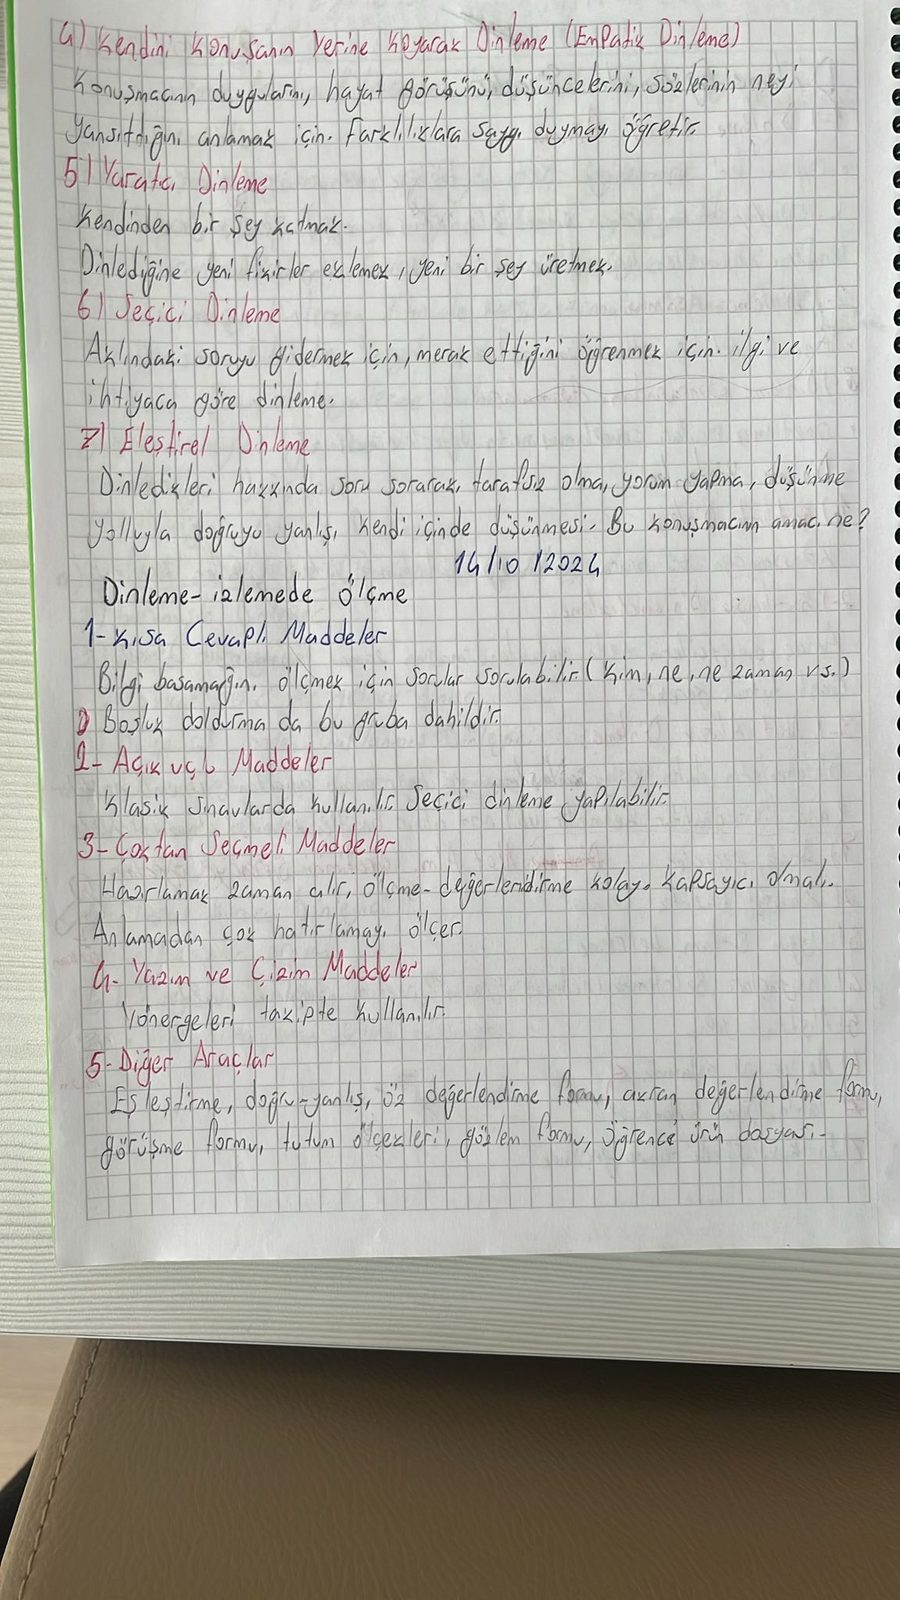 4) Kendini Konuşanın Yerine Koyarak Dinleme (Empatik Dinleme)
Konuşmacının duygularını, hayat görüşünü, düşüncelerini, sözlerinin neyi
yansıttığını anlamak için. Farklılıklara saygı duymayı öğretir.
5) Yaratıcı Dinleme
Kendinden bir şey katmak.
Dinlediğine yeni fikirler eklemek, yeni bir şey üretmek.
6) Seçici Dinleme
Aklındaki soruyu gidermek için, merak ettiğini öğrenmek için. İlgi ve
ihtiyaca göre dinleme.
7) Eleştirel Dinleme
Dinledikleri hakkında soru sorarak, tarafsız olma, yorum yapma, düşünme
yolluyla doğruyu yanlışı kendi içinde düşünmesi. Bu konuşmacının amacı ne?
14/10/2024
Dinleme-izlemede ölçme
1- Kısa Cevaplı Maddeler
Bilgi basamağını ölçmek için sorular sorulabilir (kim, ne, ne zaman vs.)
Boşluk doldurma da bu gruba dahildir.
2- Açık uçlu Maddeler
Klasik sınavlarda kullanılır. Seçici dinleme yapılabilir.
3- Çoktan Seçmeli Maddeler
Hazırlamak zaman alır, ölçme-değerlendirme kolay. Kapsayıcı olmalı.
Anlamadan çok hatırlamayı ölçer.
4- Yazım ve Çizim Maddeler
Yönergeleri takipte kullanılır.
5- Diğer Araçlar
Eşleştirme, doğru-yanlış, öz değerlendirme formu, akran değerlendirme formu,
görüşme formu, tutum ölçekleri, gözlem formu, öğrenci ürün dosyası.